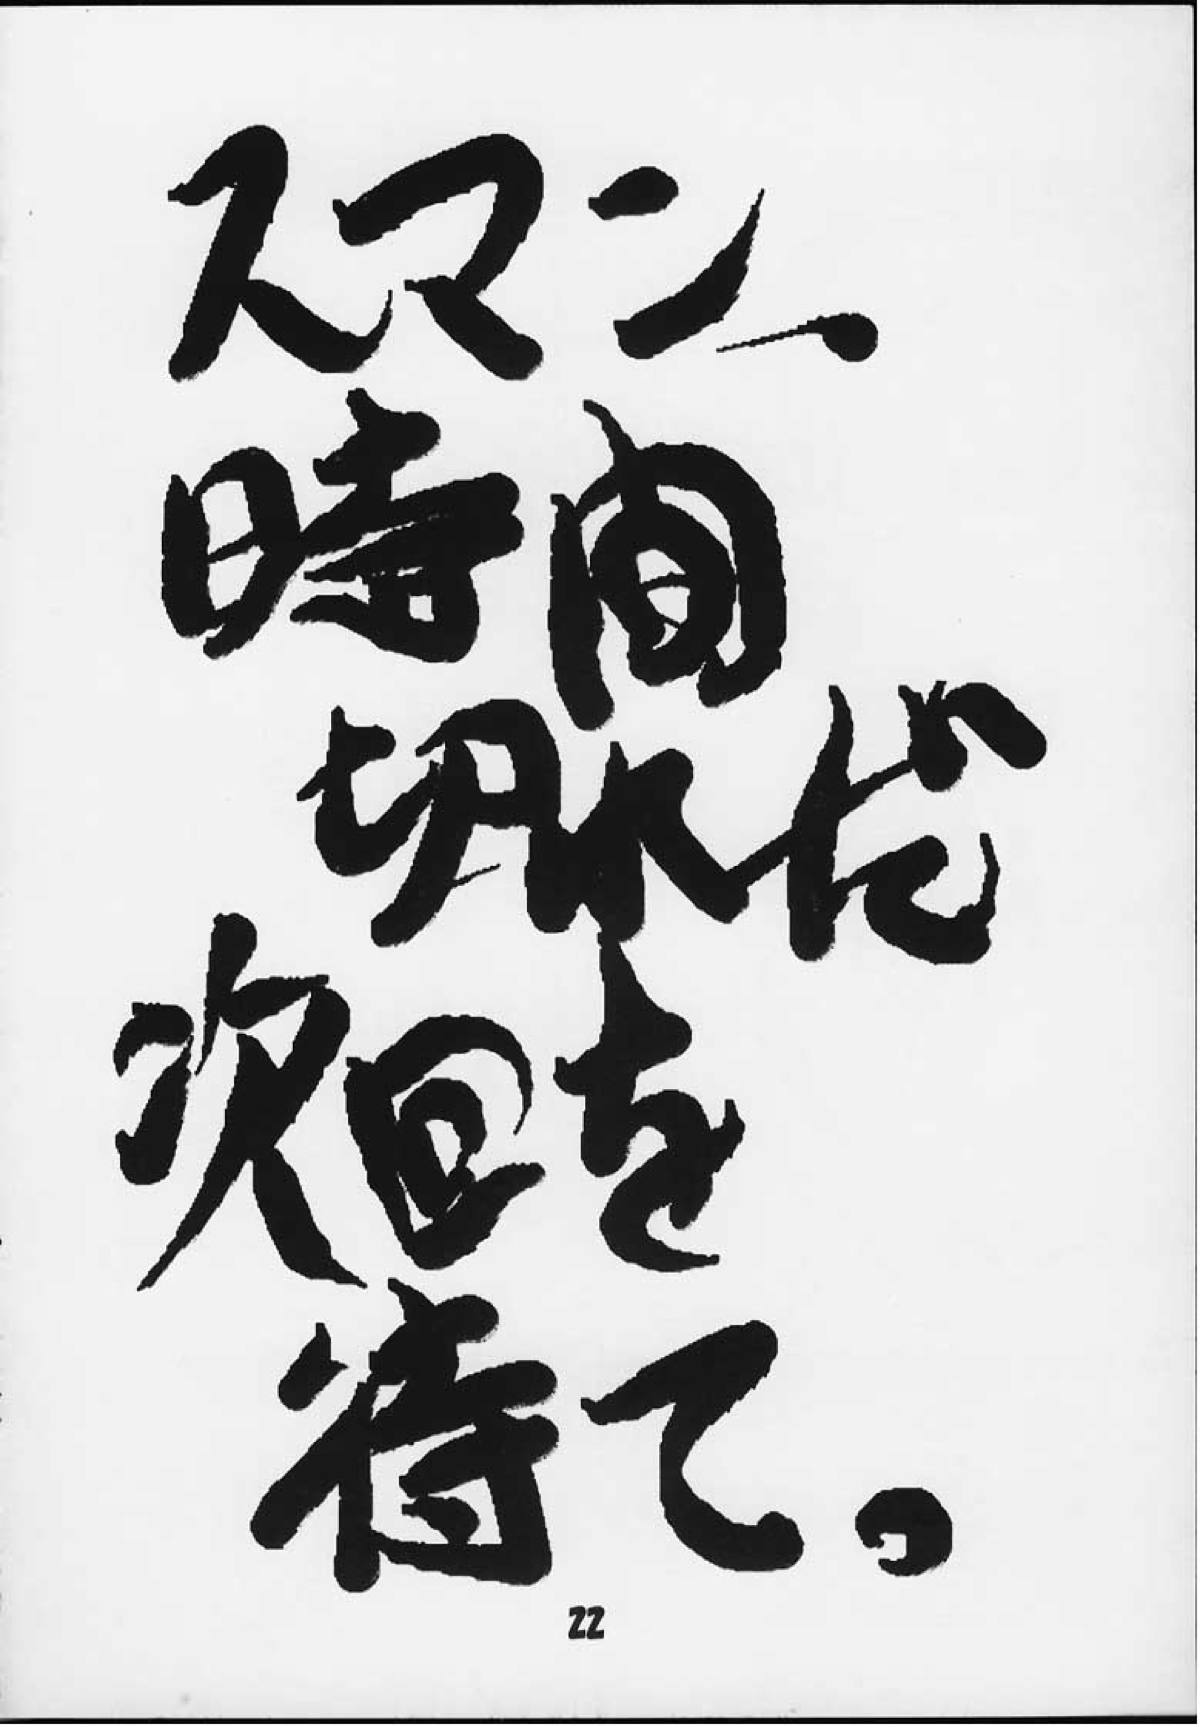 スマン、
時間
切れだ
次回を
待て。
22